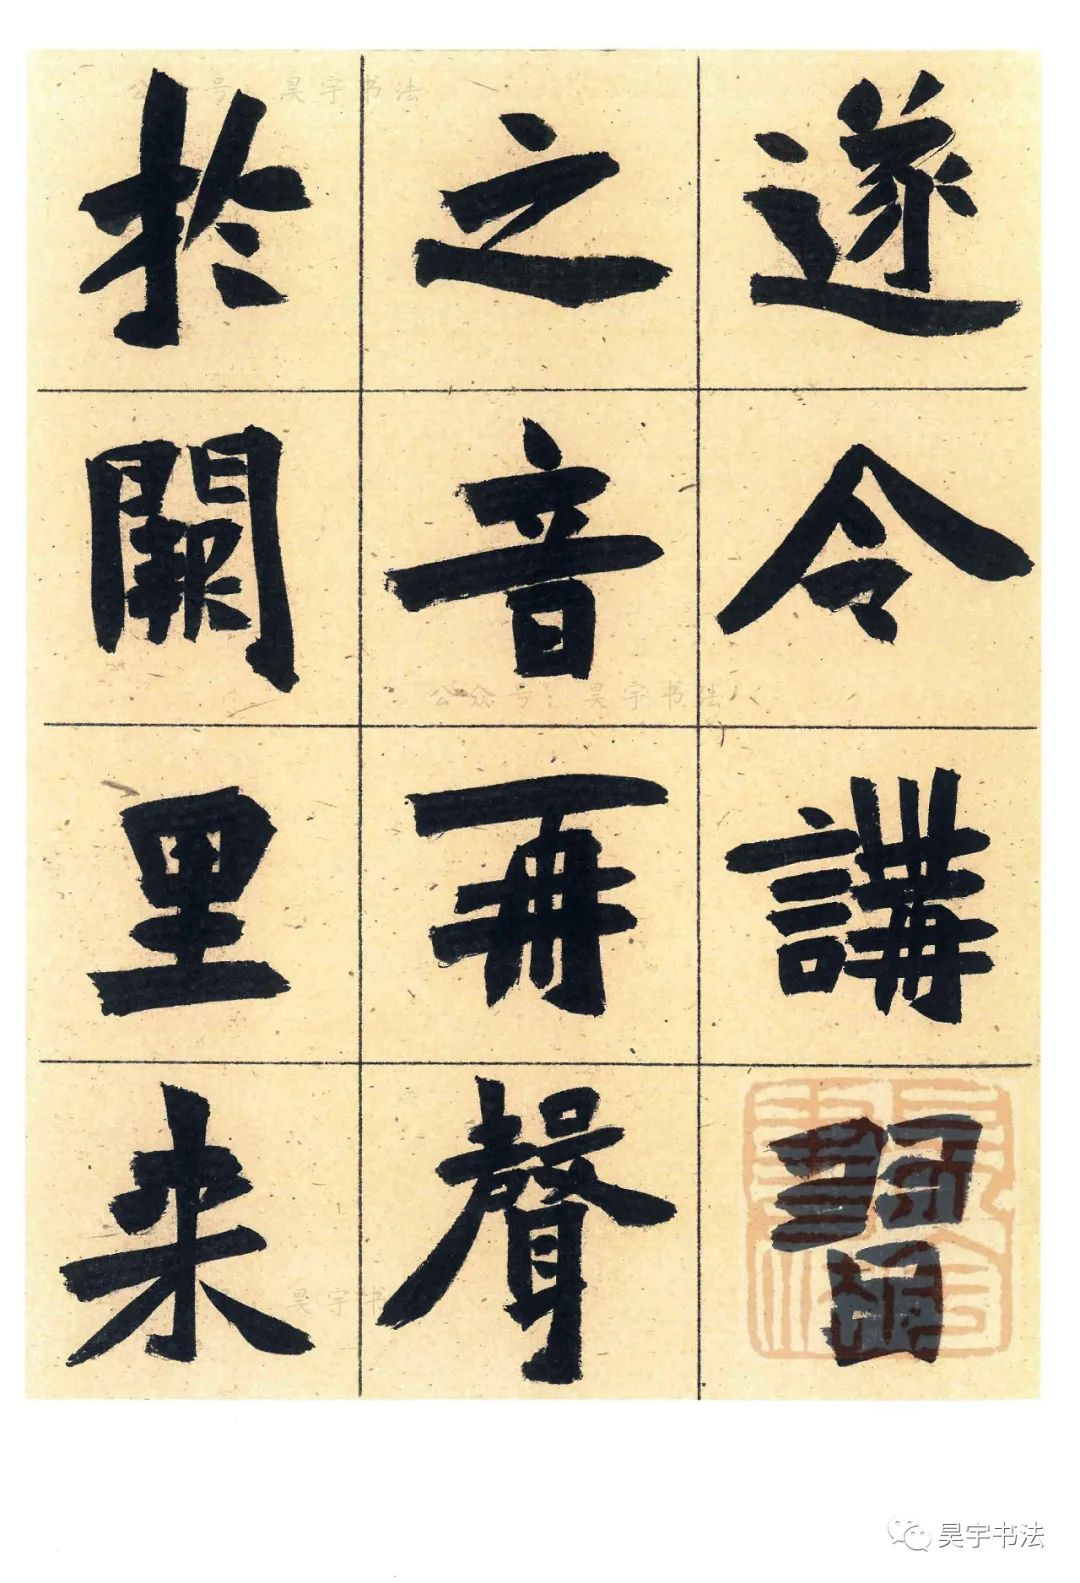 遂令講習
之音再聲
於闕里来
公众号：昊宇书法
公众号：昊宇书法
昊宇书
昊宇书法